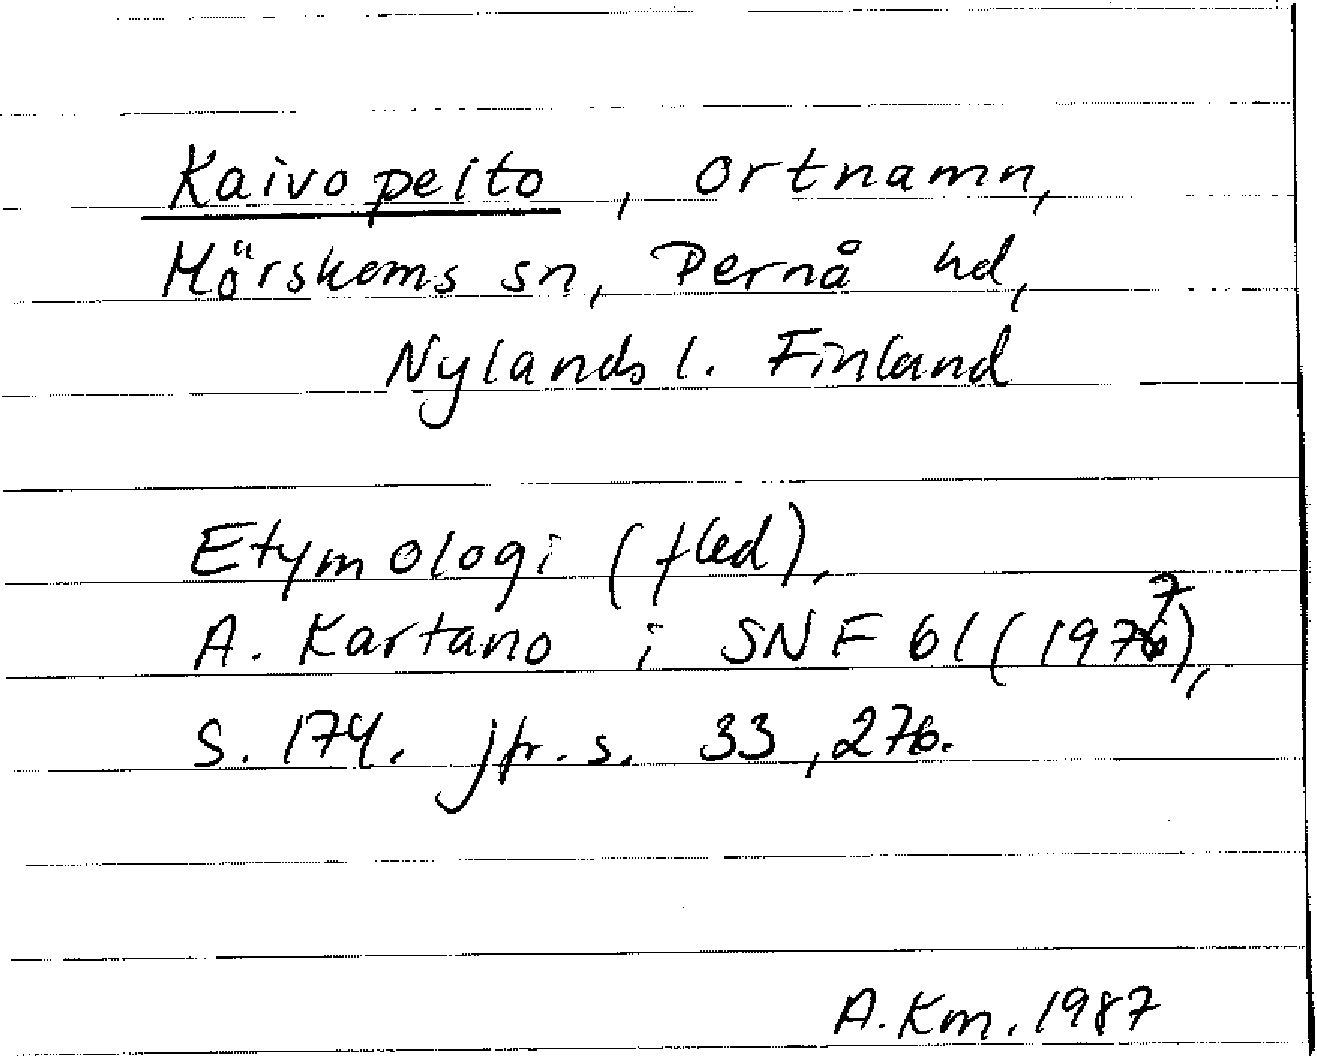 Kaivopelto, ortnamn,
Mörskoms sn, Pernå hd,
Nylands l. Finland
Etymologi (fled),
A. Kartano i SNF 61 (1977),
s. 174. jfr. s. 33, 276.
A. Km. 1987